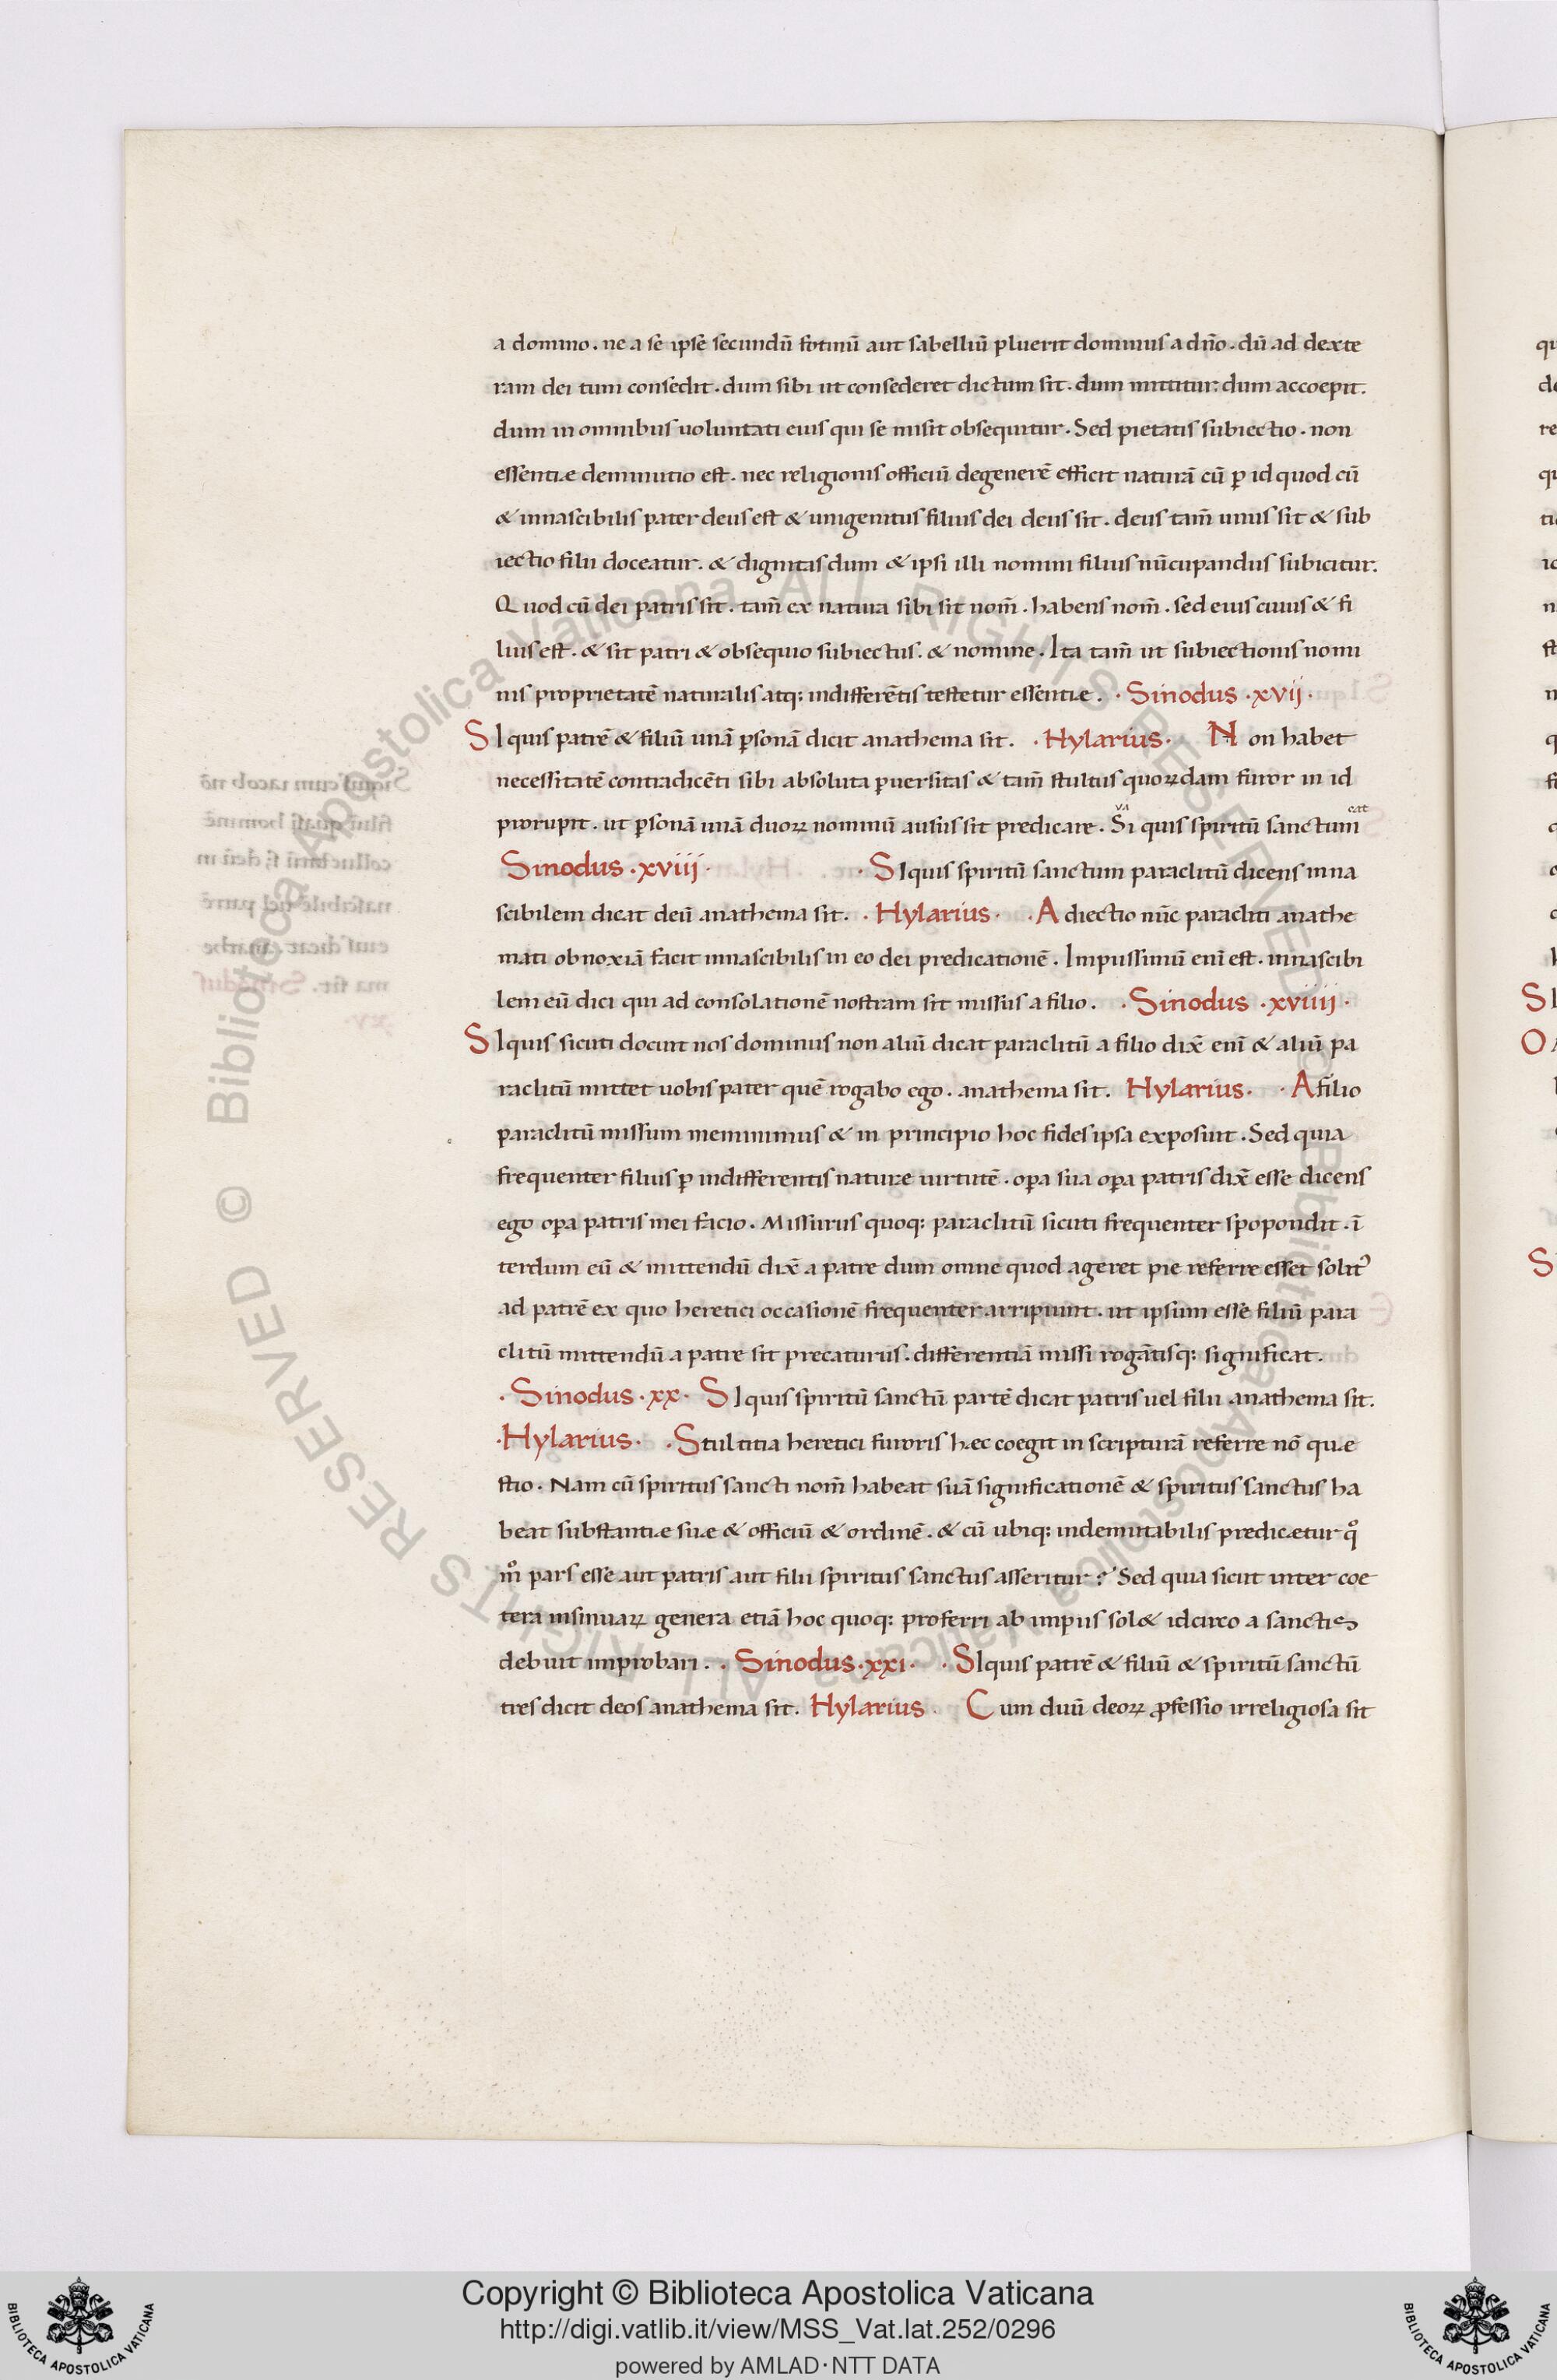 a domino. ne a se ipse secundū fotinū aut sabelliū pluerit dominus a dño. dū ad dexte
ram dei tum consedit. dum sibi ut consederet dictum sit. dum mittitur: dum accoepit.
dum in omnibus uoluntati eius qui se misit obsequitur. Sed pietatis subiectio. non
essentiæ deminutio est. nec religionis officiū degenerē efficit naturā cū ꝑ id quod cū
& innascibilis pater deus est & unigenitus filius dei deus sit. deus tam̄ unus sit & sub
iectio filii doceatur. & dignitas dum & ipsi illi nomini filius nūcupandus subicitur.
Quod cū dei patris sit. tam̄ ex natura sibi sit nom̄. habens nom̄. sed eius cuius & fi
lius est. & sit patri & obsequio subiectus. & nomine. Ita tam̄ ut subiectionis nomi
nis proprietatē naturalis atq: indifferētis testetur essentiæ. · Sinodus · xvij ·
SI quis patrē & filiū unā ꝑsonā dicit anathema sit. · Hylarius · Non habet
necessitatē contradicēti sibi absoluta ꝑuersitas & tam̄ stultus quoꝝdam furor in id
prorupit. ut ꝑsonā unā duoꝝ nominū ausus sit predicare. Si quis spiritū sanctum
Sinodus · xviij · · SI quis spiritū sanctum paraclitū dicens inna
scibilem dicat deū anathema sit. · Hylarius · · Adiectio nūc paracliti anathe
mati obnoxiā facit innascibilis in eo dei predicationē. Impiissimū eni est. innascibi
lem eū dici qui ad consolationē nostram sit missus a filio. · Sinodus · xviiij ·
SI quis sicuti docuit nos dominus non aliū dicat paraclitū a filio dix̄ eni & aliū pa
raclitū mittet uobis pater quē rogabo ego. anathema sit. Hylarius · · A filio
paraclitū missum meminimus & in principio hoc fides ipsa exposuit. Sed quia
frequenter filius ꝑ indifferentis nature uirtutē. oꝑa sua oꝑa patris dix̄ esse dicens
ego oꝑa patris mei facio. Missurus quoq: paraclitū sicuti frequenter spopondit. ī
terdum eū & mittendū dix̄ a patre dum omne quod ageret pie referre esset solit᾽
ad patrē ex quo heretici occasionē frequenter arripiunt. ut ipsum esse filiū para
clitū mittendū a patre sit precaturus. differentiā missi rogātisq: significat.
· Sinodus · xx · SI quis spiritū sanctū partē dicat patris uel filii anathema sit.
· Hylarius · · Stultitia heretici furoris hæc coegit in scripturā referre nō quæ
stio. Nam cū spiritus sancti nom̄ habeat suā significationē & spiritus sanctus ha
beat substantiæ suæ & officiū & ordinē. & cū ubiq: indemutabilis predicætur qͦ
mͦ pars esse aut patris aut filii spiritus sanctus asseritur? Sed quia sicut inter coe
tera insinuaꝝ genera etiā hoc quoq: proferri ab impiis sol& idcirco a sanctis
debuit improbari. · Sinodus · xxi · · SI quis patrē & filiū & spiritū sanctū
tres dicit deos anathema sit. Hylarius · Cum duū deoꝝ ꝓfessio irreligiosa sit
Copyright © Biblioteca Apostolica Vaticana
http://digi.vatlib.it/view/MSS_Vat.lat.252/0296
powered by AMLAD·NTT DATA
BIBLIOTECA APOSTOLICA VATICANA
BIBLIOTECA APOSTOLICA VATICANA
© Biblioteca Apostolica Vaticana ALL RIGHTS RESERVED
© Biblioteca Apostolica Vaticana ALL RIGHTS RESERVED